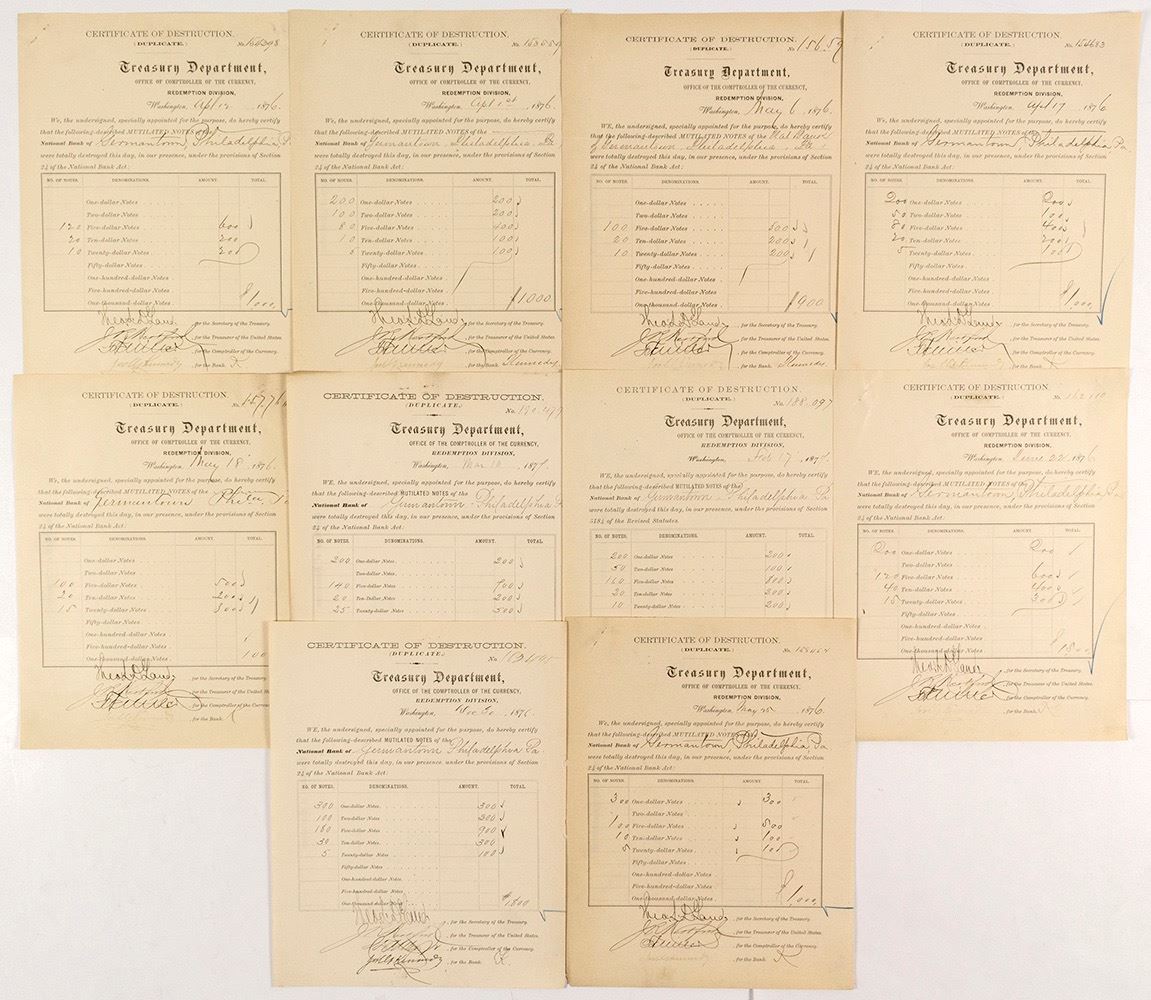 CERTIFICATE OF DESTRUCTION.
(DUPLICATE.)
No.
Treasury Department,
OFFICE OF COMPTROLLER OF THE CURRENCY,
REDEMPTION DIVISION,
Washington, Apl 12 1876.
We, the undersigned, specially appointed for the purpose, do hereby certify
that the following-described MUTILATED NOTES of the
National Bank of Germantown, Philadelphia Pa
were totally destroyed this day, in our presence, under the provisions of Section
24 of the National Bank Act:
NO. OF NOTES. DENOMINATIONS. AMOUNT. TOTAL.
One-dollar Notes
Two-dollar Notes
120 Five-dollar Notes 600
20 Ten-dollar Notes 200
10 Twenty-dollar Notes 200
Fifty-dollar Notes
One-hundred-dollar Notes
Five-hundred-dollar Notes
One-thousand-dollar Notes $1000
, for the Secretary of the Treasury.
, for the Treasurer of the United States.
, for the Comptroller of the Currency.
, for the Bank.
CERTIFICATE OF DESTRUCTION.
(DUPLICATE.)
No.
Treasury Department,
OFFICE OF COMPTROLLER OF THE CURRENCY,
REDEMPTION DIVISION,
Washington, Apl 1st 1876.
We, the undersigned, specially appointed for the purpose, do hereby certify
that the following-described MUTILATED NOTES of the
National Bank of Germantown, Philadelphia, Pa
were totally destroyed this day, in our presence, under the provisions of Section
24 of the National Bank Act:
NO. OF NOTES. DENOMINATIONS. AMOUNT. TOTAL.
200 One-dollar Notes 200
100 Two-dollar Notes 200
80 Five-dollar Notes 400
10 Ten-dollar Notes 100
5 Twenty-dollar Notes 100
Fifty-dollar Notes
One-hundred-dollar Notes
Five-hundred-dollar Notes
One-thousand-dollar Notes $1000
, for the Secretary of the Treasury.
, for the Treasurer of the United States.
, for the Comptroller of the Currency.
, for the Bank. Kennedy
CERTIFICATE OF DESTRUCTION.
(DUPLICATE.)
No.
Treasury Department,
OFFICE OF COMPTROLLER OF THE CURRENCY,
REDEMPTION DIVISION,
Washington, May 6, 1876.
WE, the undersigned, specially appointed for the purpose, do hereby certify
that the following-described MUTILATED NOTES of the Nat Bank
of Germantown, Philadelphia, Pa
were totally destroyed this day, in our presence, under the provisions of Section
24 of the National Bank Act:
NO. OF NOTES. DENOMINATIONS. AMOUNT. TOTAL.
One-dollar Notes
Two-dollar Notes
100 Five-dollar Notes 500
20 Ten-dollar Notes 200
10 Twenty-dollar Notes 200
Fifty-dollar Notes
One-hundred-dollar Notes
Five-hundred-dollar Notes
One-thousand-dollar Notes $900
, for the Secretary of the Treasury.
, for the Treasurer of the United States.
, for the Comptroller of the Currency.
, for the Bank. Kennedy
CERTIFICATE OF DESTRUCTION.
(DUPLICATE.)
No. 154683
Treasury Department,
OFFICE OF COMPTROLLER OF THE CURRENCY,
REDEMPTION DIVISION,
Washington, Apl 17 1876
We, the undersigned, specially appointed for the purpose, do hereby certify
that the following-described MUTILATED NOTES of the
National Bank of Germantown, Philadelphia Pa
were totally destroyed this day, in our presence, under the provisions of Section
24 of the National Bank Act:
NO. OF NOTES. DENOMINATIONS. AMOUNT. TOTAL.
200 One-dollar Notes 200
50 Two-dollar Notes 100
80 Five-dollar Notes 400
20 Ten-dollar Notes 200
5 Twenty-dollar Notes 100
Fifty-dollar Notes
One-hundred-dollar Notes
Five-hundred-dollar Notes
One-thousand-dollar Notes $1000
, for the Secretary of the Treasury.
, for the Treasurer of the United States.
, for the Comptroller of the Currency.
, for the Bank.
CERTIFICATE OF DESTRUCTION.
(DUPLICATE.)
No.
Treasury Department,
OFFICE OF COMPTROLLER OF THE CURRENCY,
REDEMPTION DIVISION,
Washington, May 18 1876.
We, the undersigned, specially appointed for the purpose, do hereby certify
that the following-described MUTILATED NOTES of the
National Bank of Germantown
were totally destroyed this day, in our presence, under the provisions of Section
24 of the National Bank Act:
NO. OF NOTES. DENOMINATIONS. AMOUNT. TOTAL.
One-dollar Notes
Two-dollar Notes
100 Five-dollar Notes 500
20 Ten-dollar Notes 200
15 Twenty-dollar Notes 300
Fifty-dollar Notes
One-hundred-dollar Notes
Five-hundred-dollar Notes
One-thousand-dollar Notes 100
, for the Secretary of the Treasury.
, for the Treasurer of the United States
, for the Comptroller of the Currency
, for the Bank.
CERTIFICATE OF DESTRUCTION.
(DUPLICATE.)
No.
Treasury Department,
OFFICE OF THE COMPTROLLER OF THE CURRENCY,
REDEMPTION DIVISION,
Washington, Mar
WE, the undersigned, specially appointed for the purpose, do hereby certify
that the following-described MUTILATED NOTES of the
National Bank of Germantown Philadelphia
were totally destroyed this day, in our presence, under the provisions of Section
24 of the National Bank Act:
NO. OF NOTES. DENOMINATIONS. AMOUNT. TOTAL.
200 One-dollar Notes 200
Two-dollar Notes
140 Five-dollar Notes 700
20 Ten-dollar Notes 200
25 Twenty-dollar Notes 500
CERTIFICATE OF DESTRUCTION.
(DUPLICATE.)
No. 188.097
Treasury Department,
OFFICE OF THE COMPTROLLER OF THE CURRENCY,
REDEMPTION DIVISION,
Washington, Feb 17
WE, the undersigned, specially appointed for the purpose, do hereby certify
that the following-described MUTILATED NOTES of the
National Bank of Germantown Philadelphia Pa
were totally destroyed this day, in our presence, under the provisions of Section
5184 of the Revised Statutes.
NO. OF NOTES. DENOMINATIONS. AMOUNT. TOTAL.
200 One-dollar Notes 200
50 Two-dollar Notes 100
160 Five-dollar Notes 800
Ten-dollar Notes
10 Twenty-dollar Notes 200
CERTIFICATE OF DESTRUCTION.
(DUPLICATE.)
No. 162110
Treasury Department,
OFFICE OF COMPTROLLER OF THE CURRENCY,
REDEMPTION DIVISION,
Washington, June 22 1876
We, the undersigned, specially appointed for the purpose, do hereby certify
that the following-described MUTILATED NOTES of the
National Bank of Germantown, Philadelphia, Pa
were totally destroyed this day, in our presence, under the provisions of Section
24 of the National Bank Act:
NO. OF NOTES. DENOMINATIONS. AMOUNT. TOTAL.
200 One-dollar Notes 200
Two-dollar Notes
120 Five-dollar Notes 600
40 Ten-dollar Notes 400
15 Twenty-dollar Notes 300
Fifty-dollar Notes
One-hundred-dollar Notes
Five-hundred-dollar Notes
One-thousand-dollar Notes
, for the Secretary of the Treasury.
, for the Treasurer of the United States.
, for the Comptroller of the Currency.
, for the Bank.
CERTIFICATE OF DESTRUCTION.
(DUPLICATE.)
No.
Treasury Department,
OFFICE OF THE COMPTROLLER OF THE CURRENCY,
REDEMPTION DIVISION,
Washington, 1876.
WE, the undersigned, specially appointed for the purpose, do hereby certify
that the following-described MUTILATED NOTES of the
National Bank of Germantown Philadelphia Pa.
were totally destroyed this day, in our presence, under the provisions of Section
24 of the National Bank Act:
NO. OF NOTES. DENOMINATIONS. AMOUNT. TOTAL.
300 One-dollar Notes 300
100 Two-dollar Notes
180 Five-dollar Notes 900
30 Ten-dollar Notes 300
5 Twenty-dollar Notes 100
Fifty-dollar Notes
One-hundred-dollar Notes
Five-hundred-dollar Notes
One-thousand-dollar Notes $1800
, for the Secretary of the Treasury.
, for the Treasurer of the United States.
, for the Comptroller of the Currency.
, for the Bank.
CERTIFICATE OF DESTRUCTION.
(DUPLICATE.)
No.
Treasury Department,
OFFICE OF COMPTROLLER OF THE CURRENCY,
REDEMPTION DIVISION,
Washington, May 25 1876.
We, the undersigned, specially appointed for the purpose, do hereby certify
that the following-described MUTILATED NOTES of the
National Bank of Germantown, Philadelphia, Pa
were totally destroyed this day, in our presence, under the provisions of Section
24 of the National Bank Act:
NO. OF NOTES. DENOMINATIONS. AMOUNT. TOTAL.
300 One-dollar Notes 300
Two-dollar Notes
100 Five-dollar Notes 500
10 Ten-dollar Notes 100
5 Twenty-dollar Notes 100
Fifty-dollar Notes
One-hundred-dollar Notes
Five-hundred-dollar Notes
One-thousand-dollar Notes $1000
, for the Secretary of the Treasury.
, for the Treasurer of the United States.
, for the Comptroller of the Currency.
, for the Bank.